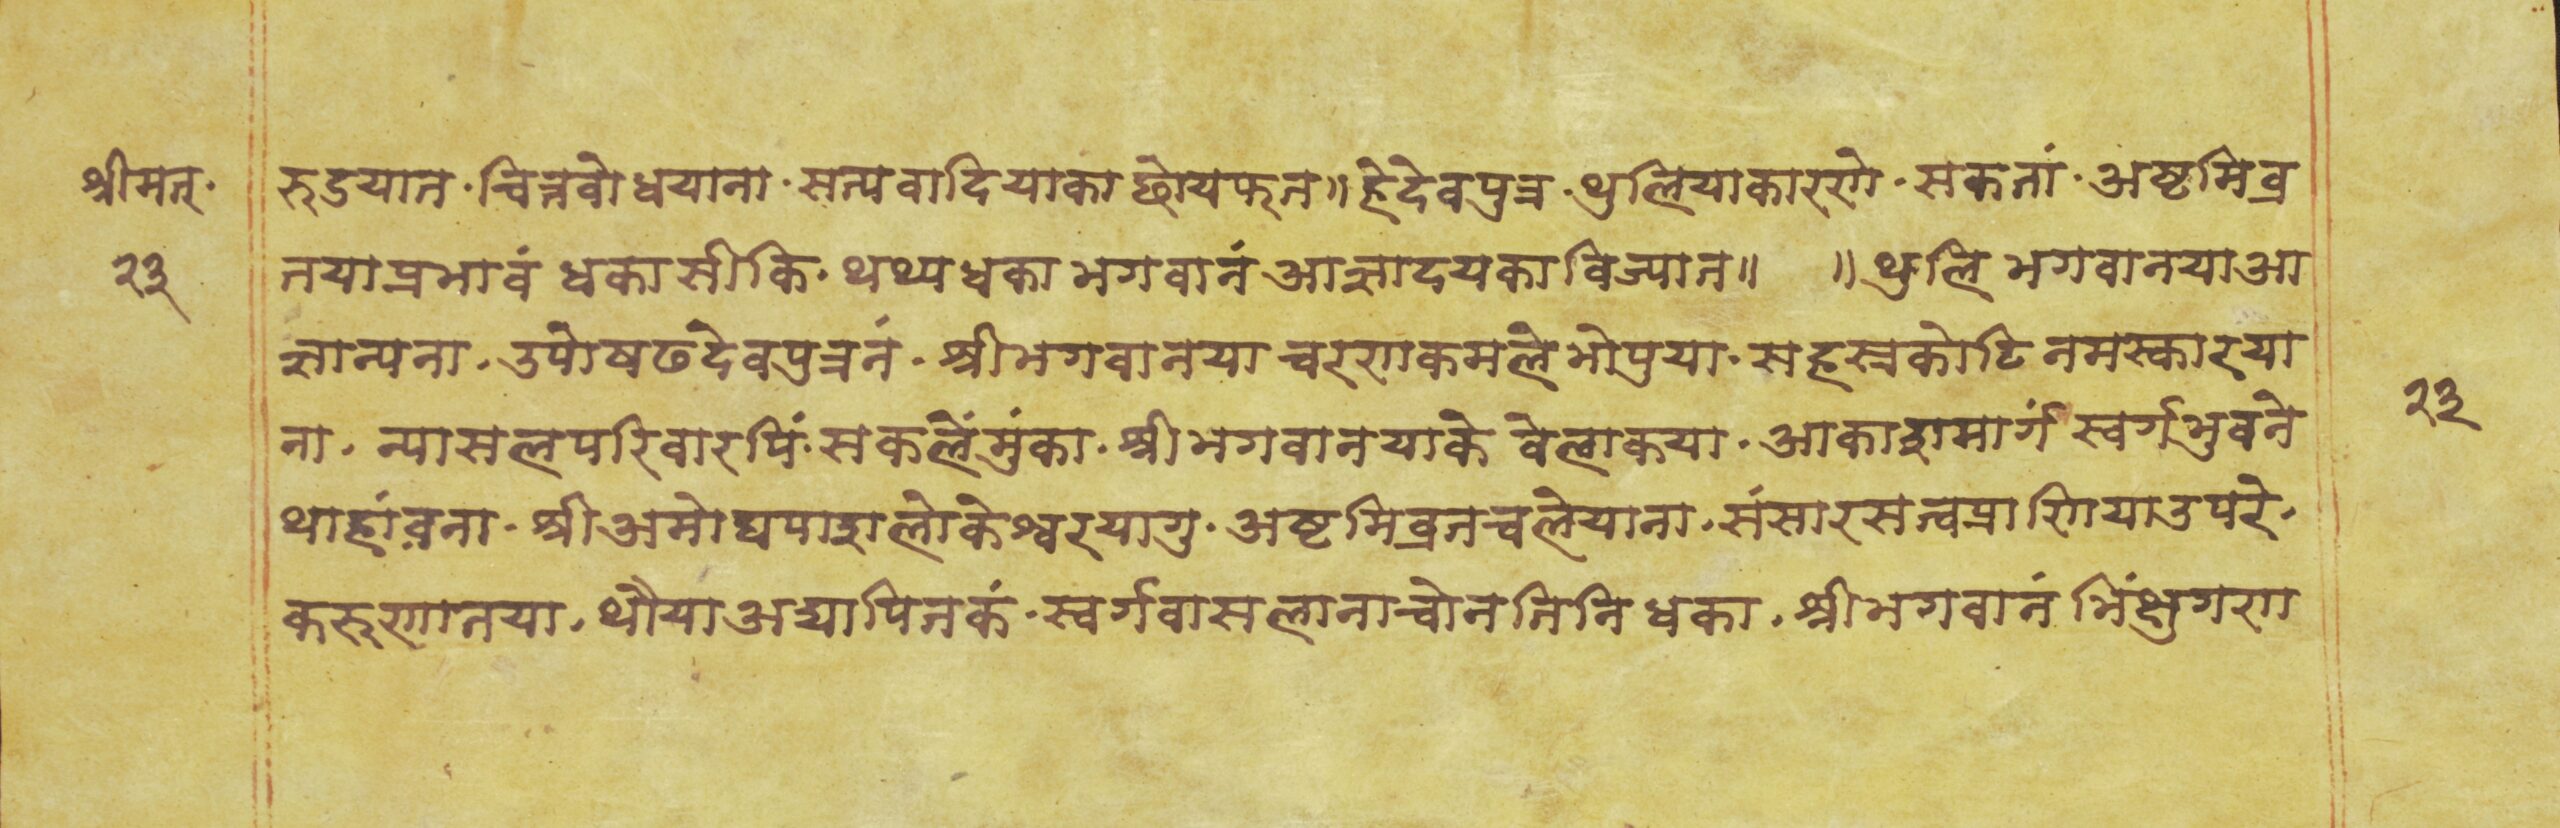 श्रीमत्·
२३
रुडयात·चित्तबोधयाना·सत्यवादियाकाछोयफत॥हेदेवपुत्र·थुलियाकारणे·सकतां·अष्टमिव्र
तयाप्रभावं धकासीकि·थथ्यधका भगवानं आज्ञादयकाविज्यात॥ ॥थुलि भगवानयाआ
ज्ञान्यना·उपोषढदेवपुत्रनं·श्रीभगवानया चरणकमले भोपुया·सहस्रकोटि नमस्कारया
ना·न्यासलपरिवारपिं·सकलेंमुंका·श्रीभगवानयाके वेलाकया·आकाशमार्गं स्वर्गभुवने
थाहांवना·श्रीअमोघपाशलोकेश्वरयागु·अष्टमिव्रतचलेयाना·संसारसत्वप्राणियाउपरे·
करुणातया·थौयाअद्यापितकं·स्वर्गवासलानाचोनतिनि धका·श्रीभगवानं भिंक्षुगण
२३